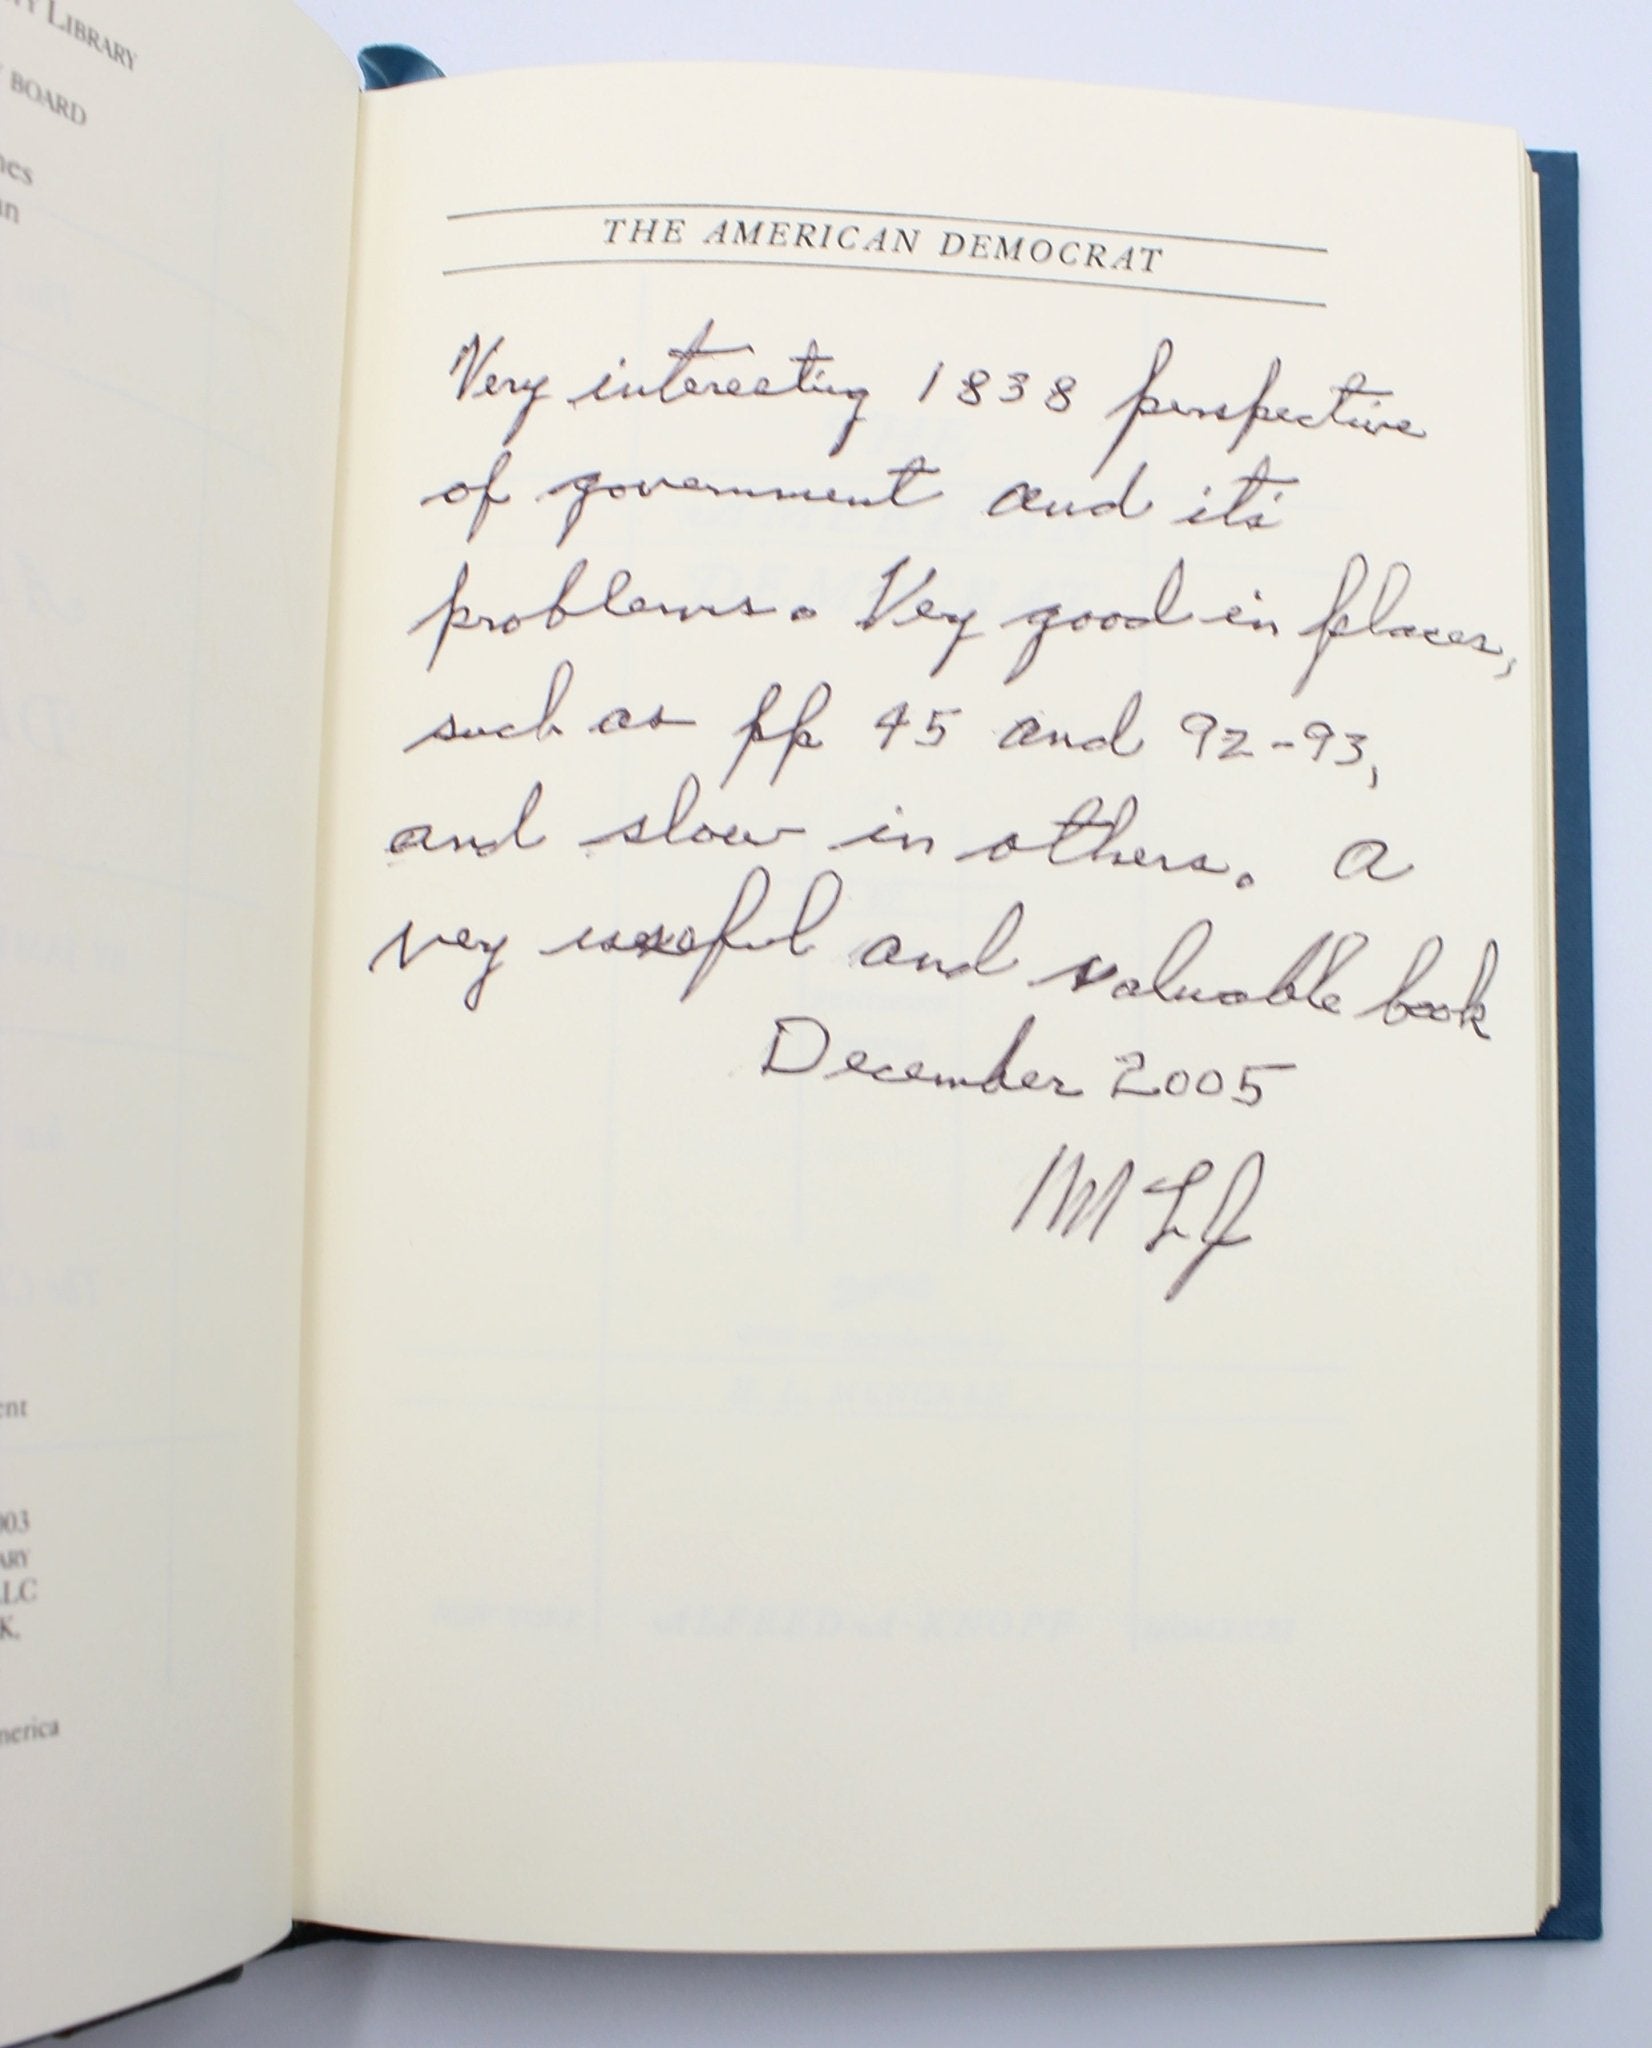 NY LIBRARY
BOARD
nes
an
ent
003
ARY
LLC
K.
merica
THE AMERICAN DEMOCRAT
Very interesting 1838 perspective
of government and it's
problems. Very good in places,
such as pp 45 and 92-93,
and slow in others. A
very useful and valuable book
December 2005
M L J